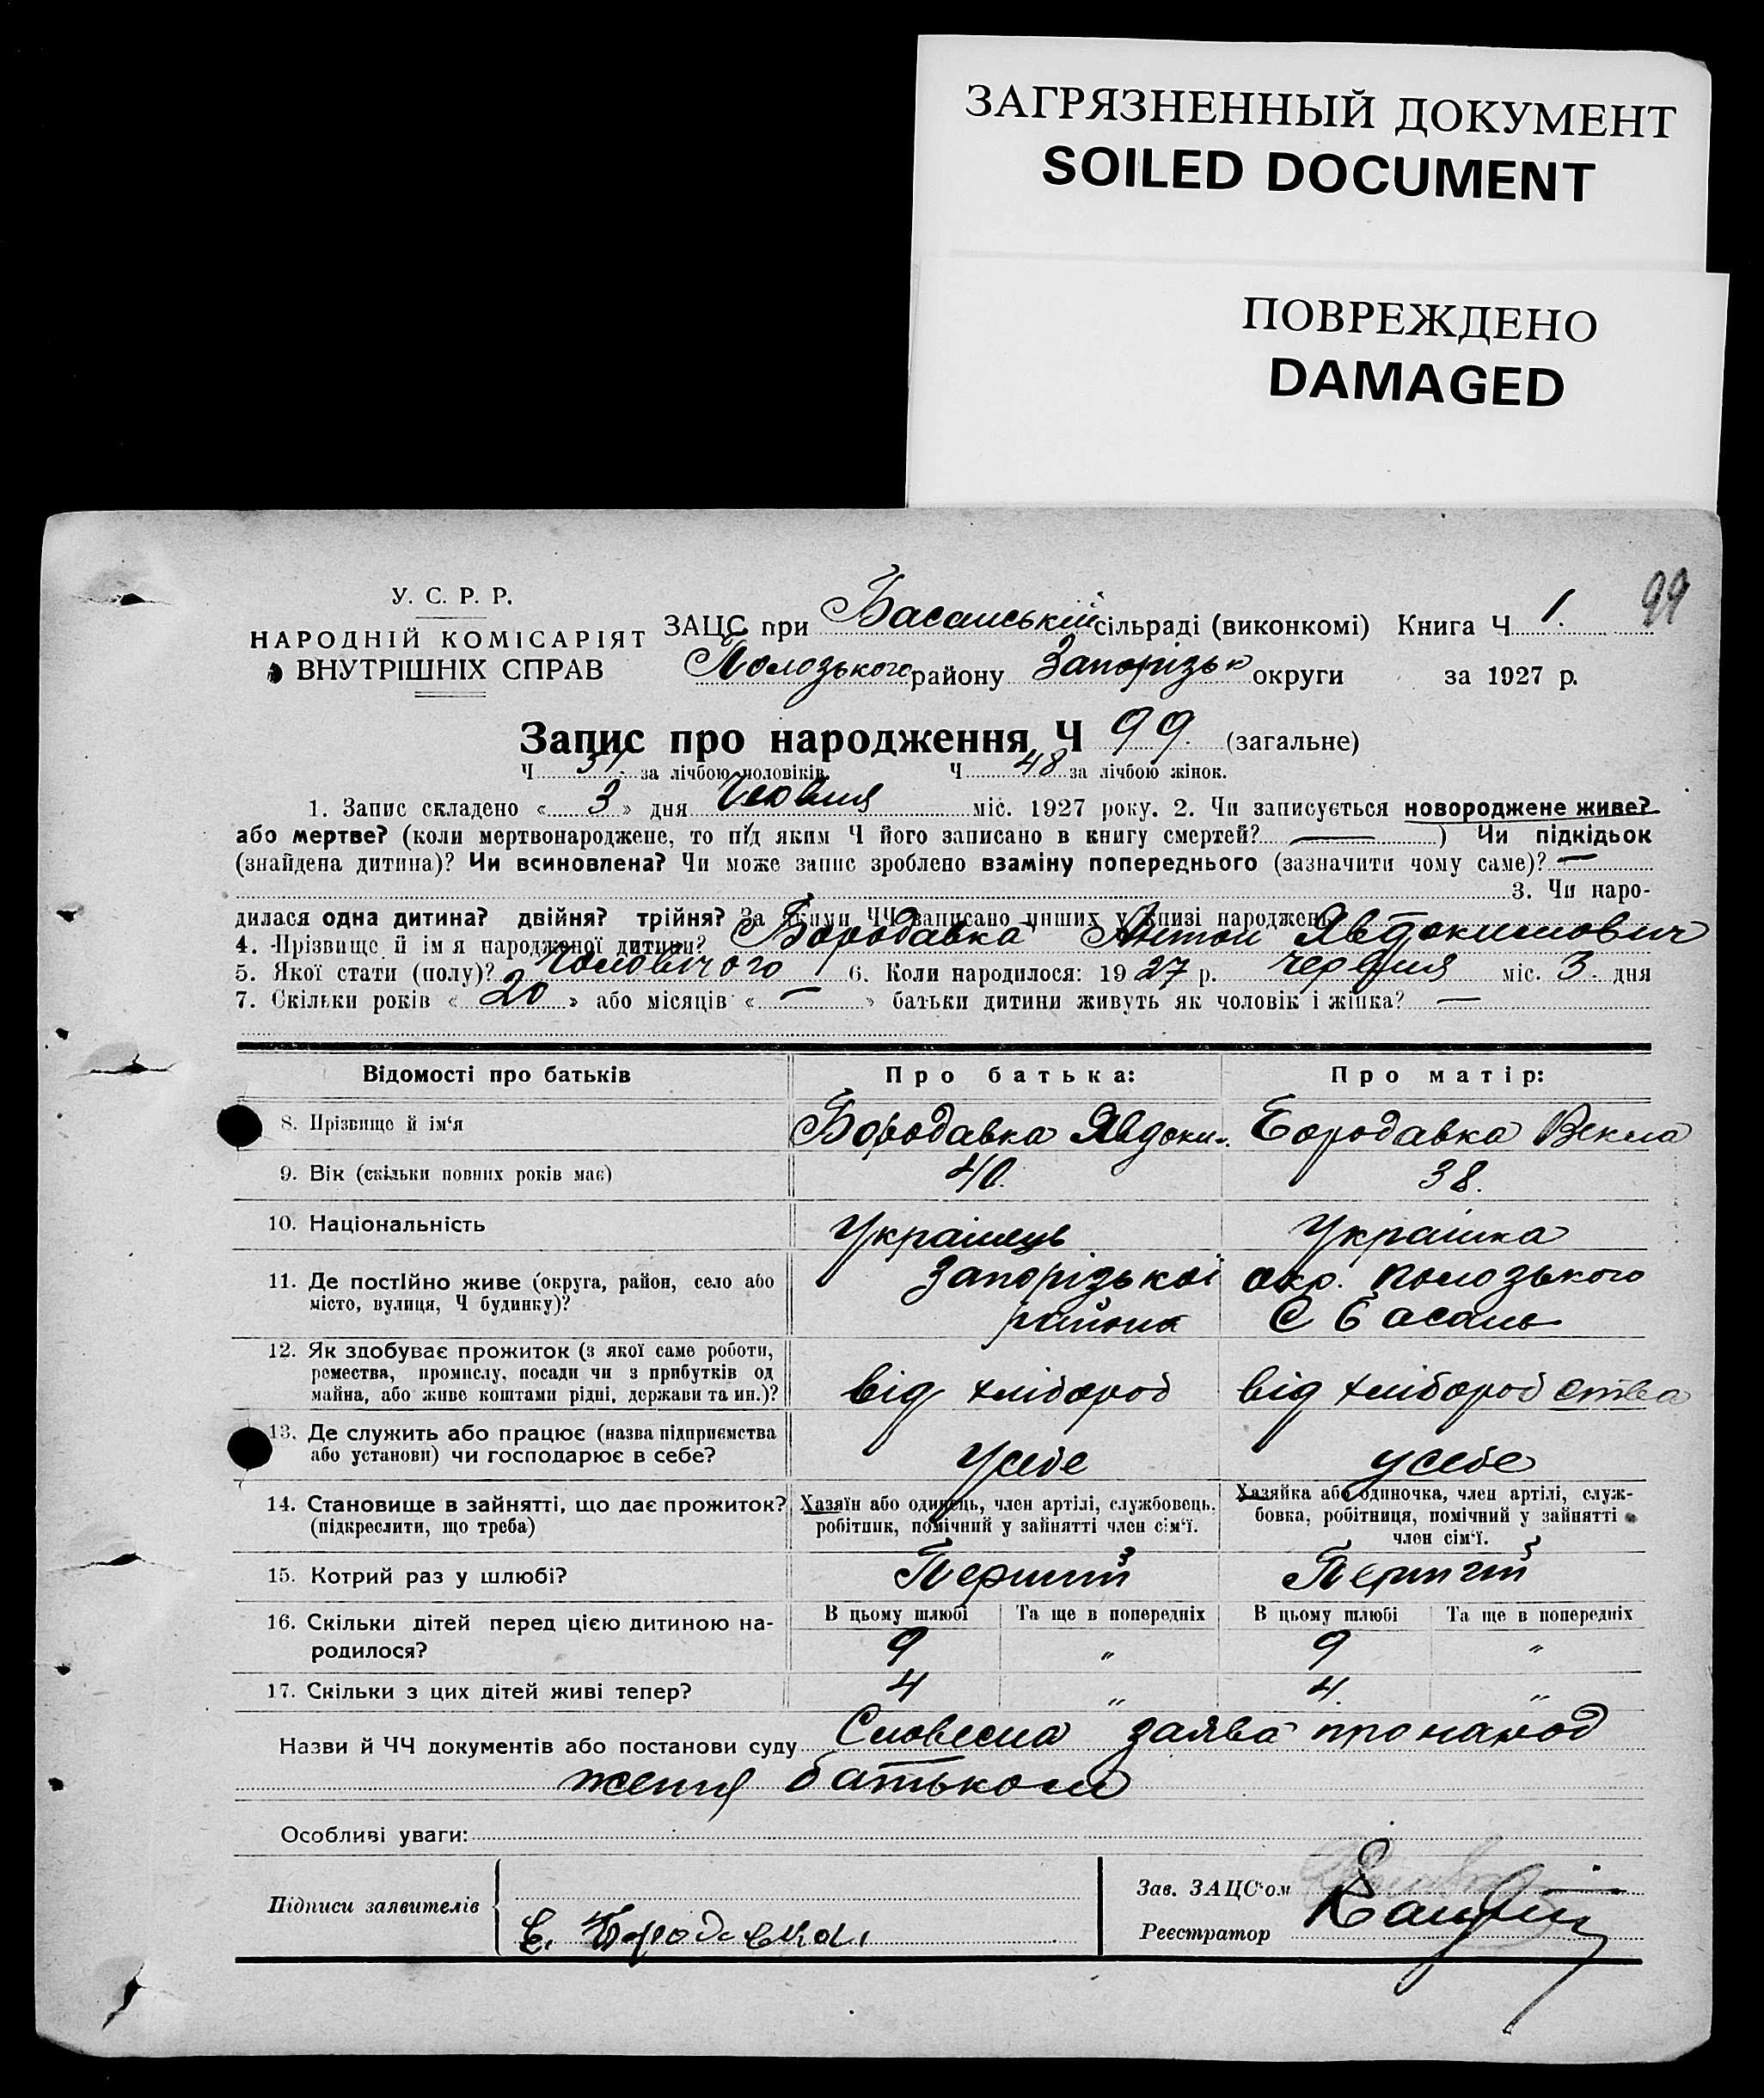 ЗАГРЯЗНЕННЫЙ ДОКУМЕНТ
SOILED DOCUMENT
ПОВРЕЖДЕНО
DAMAGED
99
У. С. Р. Р.
НАРОДНІЙ КОМІСАРІЯТ
ВНУТРІШНІХ СПРАВ
ЗАЦС при Басанській сільраді (виконкомі) Книга Ч 1.
Полозького району Запорізьк округи за 1927 р.
Запис про народження Ч 99. (загальне)
Ч 51. за лічбою чоловіків. Ч 48 за лічбою жінок.
1. Запис складено « 3 » дня Червня міс. 1927 року. 2. Чи записується новороджене живе?
або мертве? (коли мертвонароджене, то під яким Ч його записано в книгу смертей? — ) Чи підкідьок
(знайдена дитина)? Чи всиновлена? Чи може запис зроблено взаміну попереднього (зазначити чому саме)? —
3. Чи наро-
дилася одна дитина? двійня? трійня? За якими ЧЧ записано инших у книзі народжень
4. Прізвище й ім'я народженої дитини? Бородавка Антон Явдокимович
5. Якої стати (полу)? Чоловічого 6. Коли народилося: 1927 р. червня міс. 3. дня
7. Скільки років « 20 » або місяців « — » батьки дитини живуть як чоловік і жінка? —
Відомості про батьків Про батька: Про матір:
8. Прізвище й ім'я Бородавка Явдоким. Бородавка Векла
9. Вік (скільки повних років має) 40. 38.
10. Національність Українець Українка
11. Де постійно живе (округа, район, село або Запорізької окр. Полозького
місто, вулиця, Ч будинку)? района С Басань
12. Як здобуває прожиток (з якої саме роботи,
ремества, промислу, посади чи з прибутків од
майна, або живе коштами рідні, держави та ин.)? від хлібороб від хліборобства
13. Де служить або працює (назва підприємства
або установи) чи господарює в себе? Усебе усебе
14. Становище в зайнятті, що дає прожиток? Хазяїн або одинець, член артілі, службовець, Хазяйка або одиночка, член артілі, служ-
(підкреслити, що треба) робітник, помічний у зайнятті член сім'ї. бовка, робітниця, помічний у зайнятті
член сім'ї.
15. Котрий раз у шлюбі? Перший Перший
16. Скільки дітей перед цією дитиною на- В цьому шлюбі Та ще в попередніх В цьому шлюбі Та ще в попередніх
родилося? 9 " 9 "
17. Скільки з цих дітей живі тепер? 4 " 4. "
Назви й ЧЧ документів або постанови суду Словесна заява про народ
ження батьком
Особливі уваги:
Підписи заявителів Є. Бородавка
Зав. ЗАЦС'ом
Реестратор